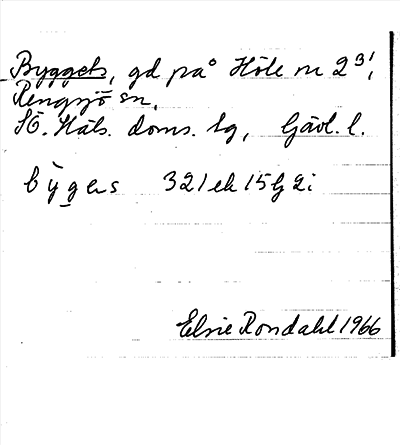 Byggets, gd på Höle nr 2³¹,
Rengsjö sn,
SÖ. Häls. doms. tg, Gävl. l.
bỳgens 321 ek 15G 2i
Elsie Rondahl 1966